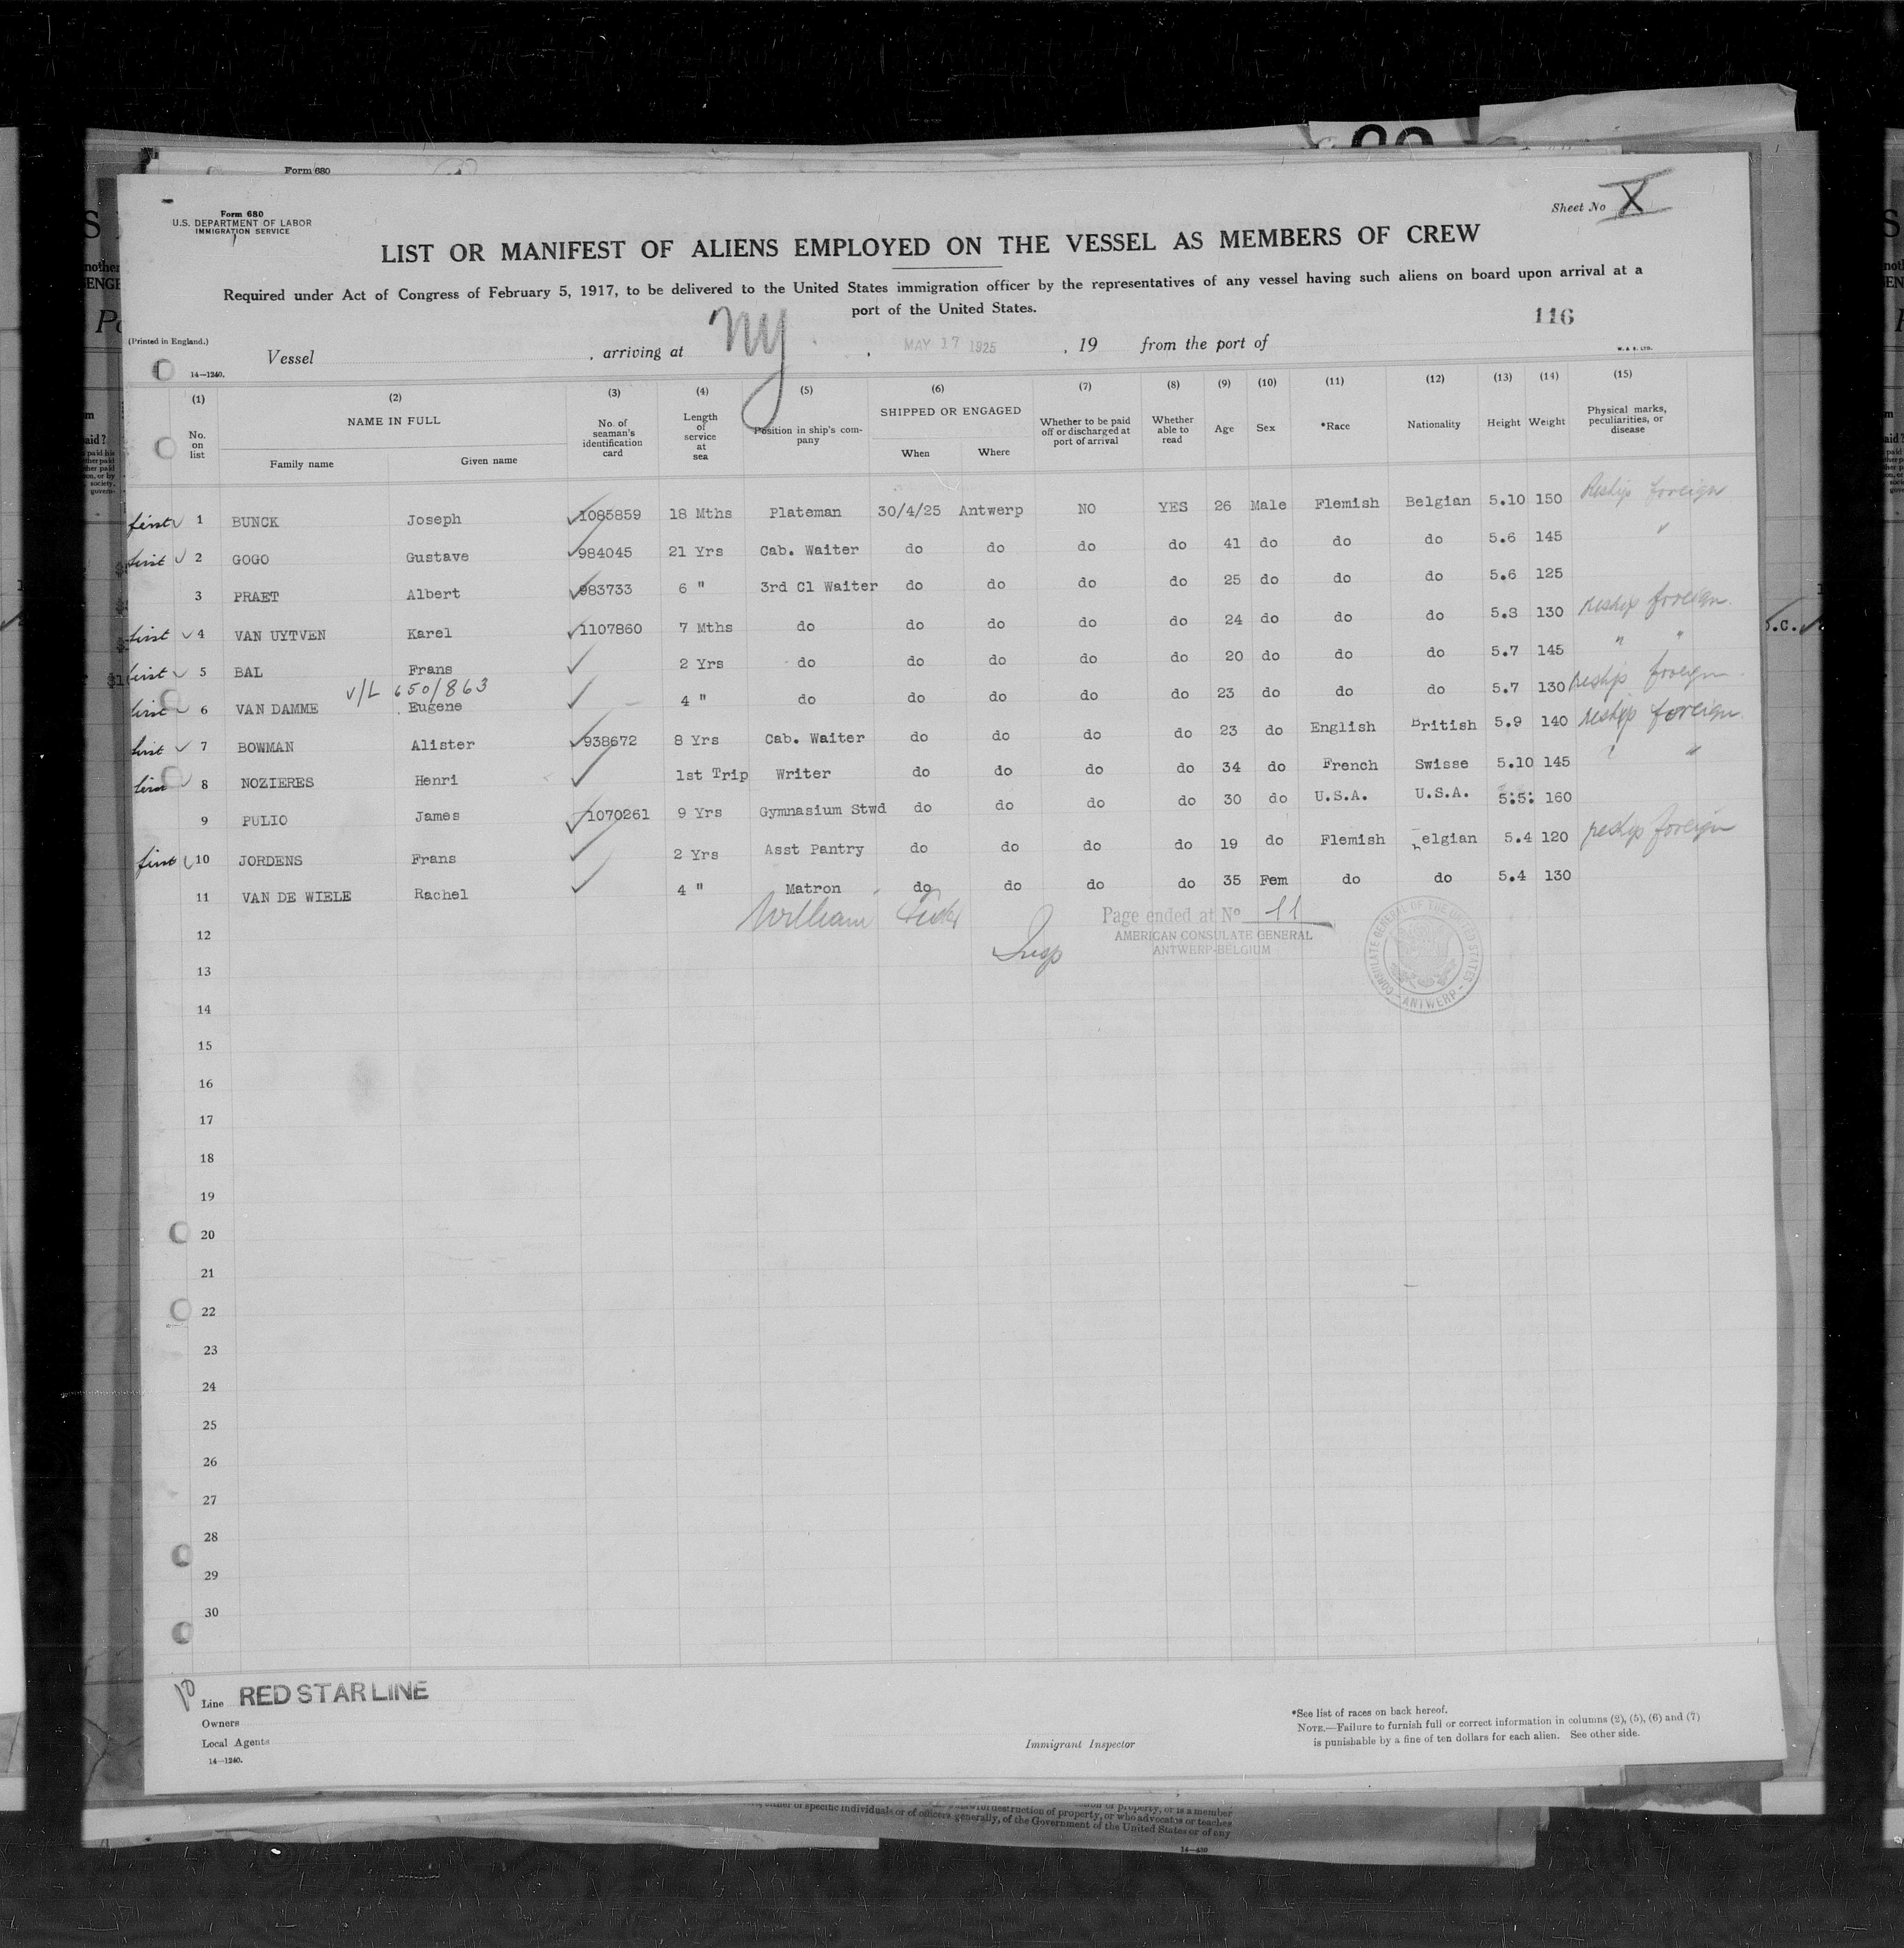 Form 680
Form 680
U.S. DEPARTMENT OF LABOR
IMMIGRATION SERVICE
Sheet No X
LIST OR MANIFEST OF ALIENS EMPLOYED ON THE VESSEL AS MEMBERS OF CREW
Required under Act of Congress of February 5, 1917, to be delivered to the United States immigration officer by the representatives of any vessel having such aliens on board upon arrival at a
port of the United States.
116
(Printed in England.)
Vessel , arriving at NY , MAY 17 1925 , 19 from the port of
14—1240.
W. & S. LTD.
(1) (2) (3) (4) (5) (6) (7) (8) (9) (10) (11) (12) (13) (14) (15)
No. on list NAME IN FULL Family name Given name No. of seaman's identification card Length of service at sea Position in ship's company SHIPPED OR ENGAGED When Where Whether to be paid off or discharged at port of arrival Whether able to read Age Sex *Race Nationality Height Weight Physical marks, peculiarities, or disease
first 1 BUNCK Joseph 1085859 18 Mths Plateman 30/4/25 Antwerp NO YES 26 Male Flemish Belgian 5.10 150 Reship foreign
first 2 GOGO Gustave 984045 21 Yrs Cab. Waiter do do do do 41 do do do 5.6 145 "
3 PRAET Albert 983733 6 " 3rd Cl Waiter do do do do 25 do do do 5.6 125
first 4 VAN UYTVEN Karel 1107860 7 Mths do do do do do 24 do do do 5.8 130 Reship foreign.
first 5 BAL Frans 2 Yrs do do do do do 20 do do do 5.7 145 " "
v/L 650/863
first 6 VAN DAMME Eugene 4 " do do do do do 23 do do do 5.7 130 Reship foreign.
first 7 BOWMAN Alister 938672 8 Yrs Cab. Waiter do do do do 23 do English British 5.9 140 reship foreign.
first 8 NOZIERES Henri 1st Trip Writer do do do do 34 do French Swisse 5.10 145 " "
9 PULIO James 1070261 9 Yrs Gymnasium Stwd do do do do 30 do U.S.A. U.S.A. 5:5: 160
first 10 JORDENS Frans 2 Yrs Asst Pantry do do do do 19 do Flemish Belgian 5.4 120 reship foreign
11 VAN DE WIELE Rachel 4 " Matron do do do do 35 Fem do do 5.4 130
William
Insp
Page ended at No 11
AMERICAN CONSULATE GENERAL
ANTWERP-BELGIUM
CONSULATE GENERAL OF THE UNITED STATES - ANTWERP -
12
13
14
15
16
17
18
19
20
21
22
23
24
25
26
27
28
29
30
10
Line RED STAR LINE
Owners
Local Agents
14—1240.
Immigrant Inspector
*See list of races on back hereof.
NOTE.—Failure to furnish full or correct information in columns (2), (5), (6) and (7)
is punishable by a fine of ten dollars for each alien. See other side.
destruction of property, or who advocates or teaches
of specific individuals or of officers generally, of the Government of the United States or of any